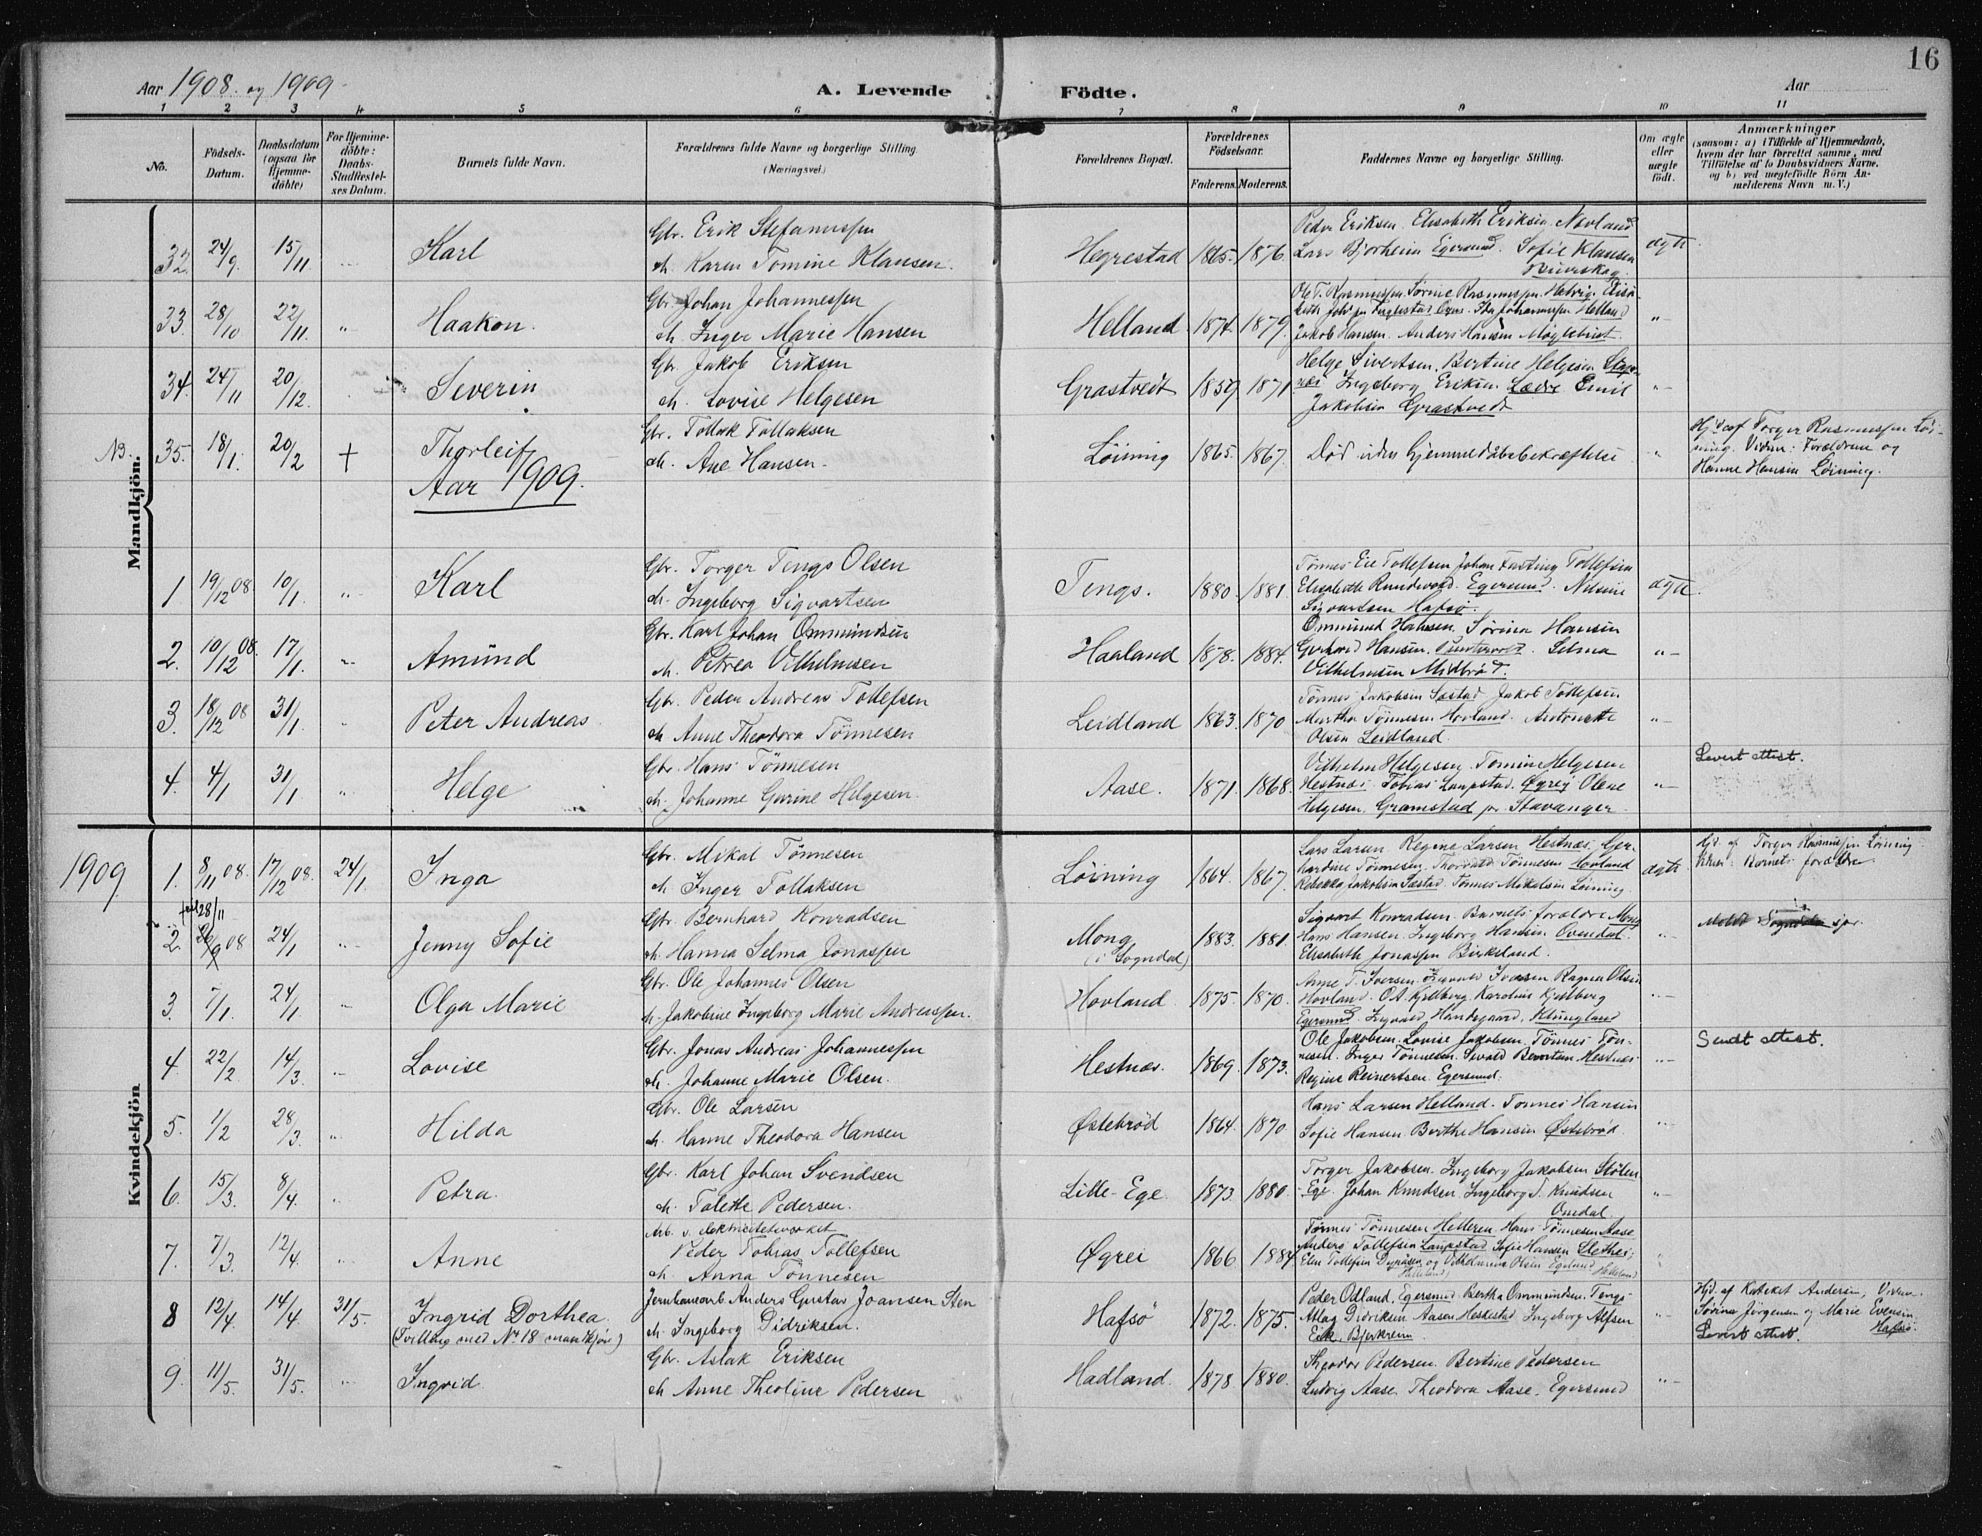 16
Aar 1908 og 1909. A. Levende Födte. Aar
1 2 3 4 5 6 7 8 9 10 11
No. Födsels-Datum. Daabsdatum (ogsaa för Hjemmedöbte) For Hjemmedöbte: Daabs-Stadfæstelses Datum. Barnets fulde Navn. Forældrenes fulde Navne og borgerlige Stilling. (Næringsvei.) Forældrenes Bopæl. Forældrenes Födselsaar. Faderens. Moderens. Faddernes Navne og borgerlige Stilling. Om ægte eller uægte födt. Anmærkninger (saasom: a) i Tilfælde af Hjemmedaab, hvem der har forrettet samme, med Tilföielse af to Daabsvidners Navne, og b) ved uægtefödte Börn Anmelderens Navn m. V.)
Mandkjön.
32. 24/9 15/11 Karl
Gbr. Erik Stefanussen
h. Karen Tomine Klausen.
Hegrestad 1865. 1876.
Peder Eriksen. Elisabeth Eriksen Novland
Lars Bjorheim Egersund. Sofie Klausen
ægte
33. 28/10 22/11 " Haakon.
Gbr. Johan Johannessen
h. Inger Marie Hansen
Helland 1874. 1879.
Ole T. Rasmussen. Sørine Rasmussen
Johannessen Helland
Jakob Hansen. Anders Hansen Møglebust.
"
34. 24/11 20/12. Severin
Gbr. Jakob Eriksen
h. Lovise Helgesen
Grastvedt 1859 1871
Helge Sivertsen. Bertine Helgesen
Ingeborg Eriksen. Emil
Jakobsen Grastvedt
"
NB. 35. 18/1. 20/2 + Thorleif
Gbr. Tollak Tollaksen
h. Ane Hansen.
Löining 1865. 1867.
Död uden hjemmedåbsbekræftelse
"
Hjd. af Torger Rasmussen Löi-
ning. Vidner: Forældrene og
Hanne Hansen Löining.
Aar 1909.
1 19/12 08 10/1. " Karl
Gbr. Torger Tengs Olsen
h. Ingeborg Sigvartsen
Tengs. 1880. 1881.
Tønnes Eie Tollefsen Johan Fasting Tollefsen
Elisabeth Rundvold. Egersund. Nilsine
Sigvartsen Hafsø.
ægte.
2. 10/12 08. 17/1. " Amund
Gbr. Karl Johan Ommundsen
h. Petrea Vilhelmsen
Haaland 1878. 1884.
Ommund Hansen. Sørina Hansen
Gerhard Hansen. Selma
Vilhelmsen Midbrød.
"
3. 18/12 08 31/1. Peter Andreas
Gbr. Peder Andreas Tollefsen
h. Anne Theodora Tönnesen
Leidland 1863. 1870
Tønnes Jakobsen Sæstad Jakob Tollefsen
Martha Tønnesen Hovland. Antonette
Olsen Leidland.
"
4. 4/1 31/1. Helge
Gbr. Hans Tönnesen
h. Johanne Gurine Helgesen.
Aase. 1871. 1868.
Vilhelm Helgesen. Tomine Helgesen
Hestnæs. Tobias Laupstad. Øgrej Olene
Helgesen. Gramstad pr. Stavanger.
"
Levert attest.
Kvindekjön
1909 1. 8/11 08. 17/12 08. 24/1. Inga
Gbr. Mikal Tönnesen
h. Inger Tollaksen
Löining 1864. 1867.
Lars Larsen. Regine Larsen Hestnæs. Ger-
hardine Tønnesen. Thorvald Tønnesen Hovland
Rebekka Jakobsen Sæstad. Tønnes Mikalsen Löining
ægte
Hjd. af Torger Rasmussen Löining
Barnets forældre
2. 28/11 08 24/1. Jenny Sofie
Gbr. Bernhard Konradsen
h. Hanna Selma Jonassen
Mong (i Sogndal) 1883. 1881.
Sigvart Konradsen. Barnets forældre Mong
Hans Hansen. Ingeborg Hansen Ovendal.
Elisabeth Jonassen Birkeland.
"
3. 7/1. 24/1 Olga Marie
Gbr. Ole Johannes Olsen
h. Jakobine Ingeborg Marie Andreassen.
Hovland 1875. 1870.
Anne T. Iversen. Ragna Olsen
Hovland. O.A. Kjellberg Karoline Kjellberg
Egersund. Ingvald Haadegaard. Klungland
"
4 22/2 14/3 Lovise
Gbr. Jonas Andreas Johannessen
h. Johanne Marie Olsen.
Hestnæs. 1869. 1873.
Ole Jakobsen. Lovise Jakobsen. Tönnes Tön-
nesen. Inger Tønnesen. Sivald Berntsen Hestnæs
Regine Reinertsen. Egersund.
"
Sendt attest.
5. 1/2 28/3. " Hilda
Gbr. Ole Larsen
h. Hanne Theodora Hansen
Østebrød 1864. 1870.
Hans Larsen Helland. Tønnes Hansen
Sofie Hansen Berthe Hansen Østebrød.
"
6. 15/3 8/4. " Petra.
Gbr. Karl Johan Svendsen
h. Talette Pedersen.
Lille-Ege 1873 1880.
Torger Jakobsen. Ingeborg Jakobsen Stølen
Ege. Johan Knudsen. Ingeborg T. Knudsen
Omdal.
"
7. 7/3. 12/4 Anne
Arb. v. elektricitetsverket
Peder Tobias Tollefsen
h. Anna Tönnesen
Øgrei 1866 1884
Tønnes Tønnesen Helleren. Hans Tønnesen Aase
Anders Tollefsen Laupstad Sofie Hansen Slethei.
Elen Tollefsen og Vilhelmina Olsen Egelund
8 12/4 14/4 31/5. Ingrid Dorthea.
(Tvilling med No 18 mandkjøn)
Jernbanearb. Anders Gustav Joansen Sten
h. Ingeborg Didriksen.
Hafsö 1872. 1875.
Peder Odland, Egersund Bertha Ommundsen. Tengs
Aslag Didriksen Aasen Heskestad. Ingeborg Alfsen
Eik, Bjerkreim
"
Hjd. af Kateket Andersen, Vidner
Sörina Jørgensen og Marie Evensen
Hafsö.
Levert attest.
9. 11/5. 31/5. Ingrid
Gbr. Aslak Eriksen
h. Anne Theoline Pedersen
Hadland. 1878 1880.
Theodor Pedersen. Bertine Pedersen
Ludvig Aase. Theodora Aase. Egersund
"